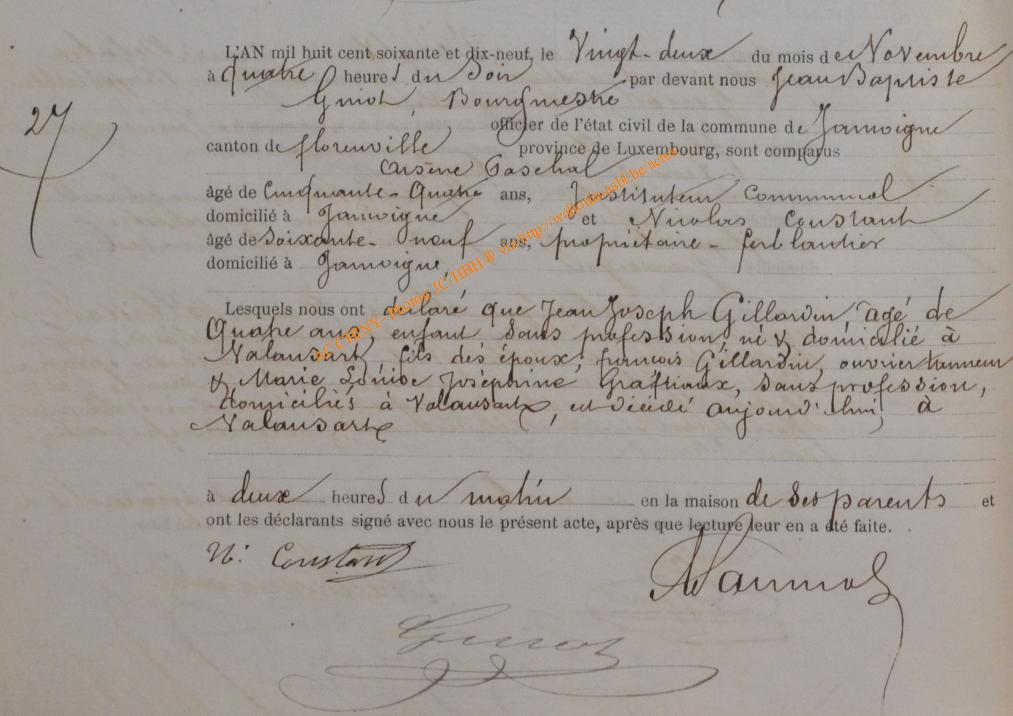 L'AN mil huit cent soixante et dix-neuf, le Vingt-deux du mois de Novembre
à quatre heures du Soir par devant nous Jean Baptiste
Guiot, Bourgmestre
officier de l'état civil de la commune de Jamoigne
27
canton de florenville province de Luxembourg, sont comparus
Arsène Paschal
âgé de Cinquante-Quatre ans, Instituteur Communal
domicilié à Jamoigne et Nicolas Constant
âgé de Soixante-neuf ans, propriétaire-ferblantier
domicilié à Jamoigne,
Lesquels nous ont déclaré que Jean Joseph Gillardin, agé de
Quatre ans, enfant sans profession, né & domicilié à
Valansart, fils des époux, francois Gillardin, ouvrier tanneur
& Marie Louise Joséphine Graftiaux, sans profession,
domiciliés à Valansart, est décédé aujourd'hui, à
Valansart
à deux heures du matin en la maison de ses parents et
ont les déclarants signé avec nous le présent acte, après que lecture leur en a été faite.
N. Constant
Guiot